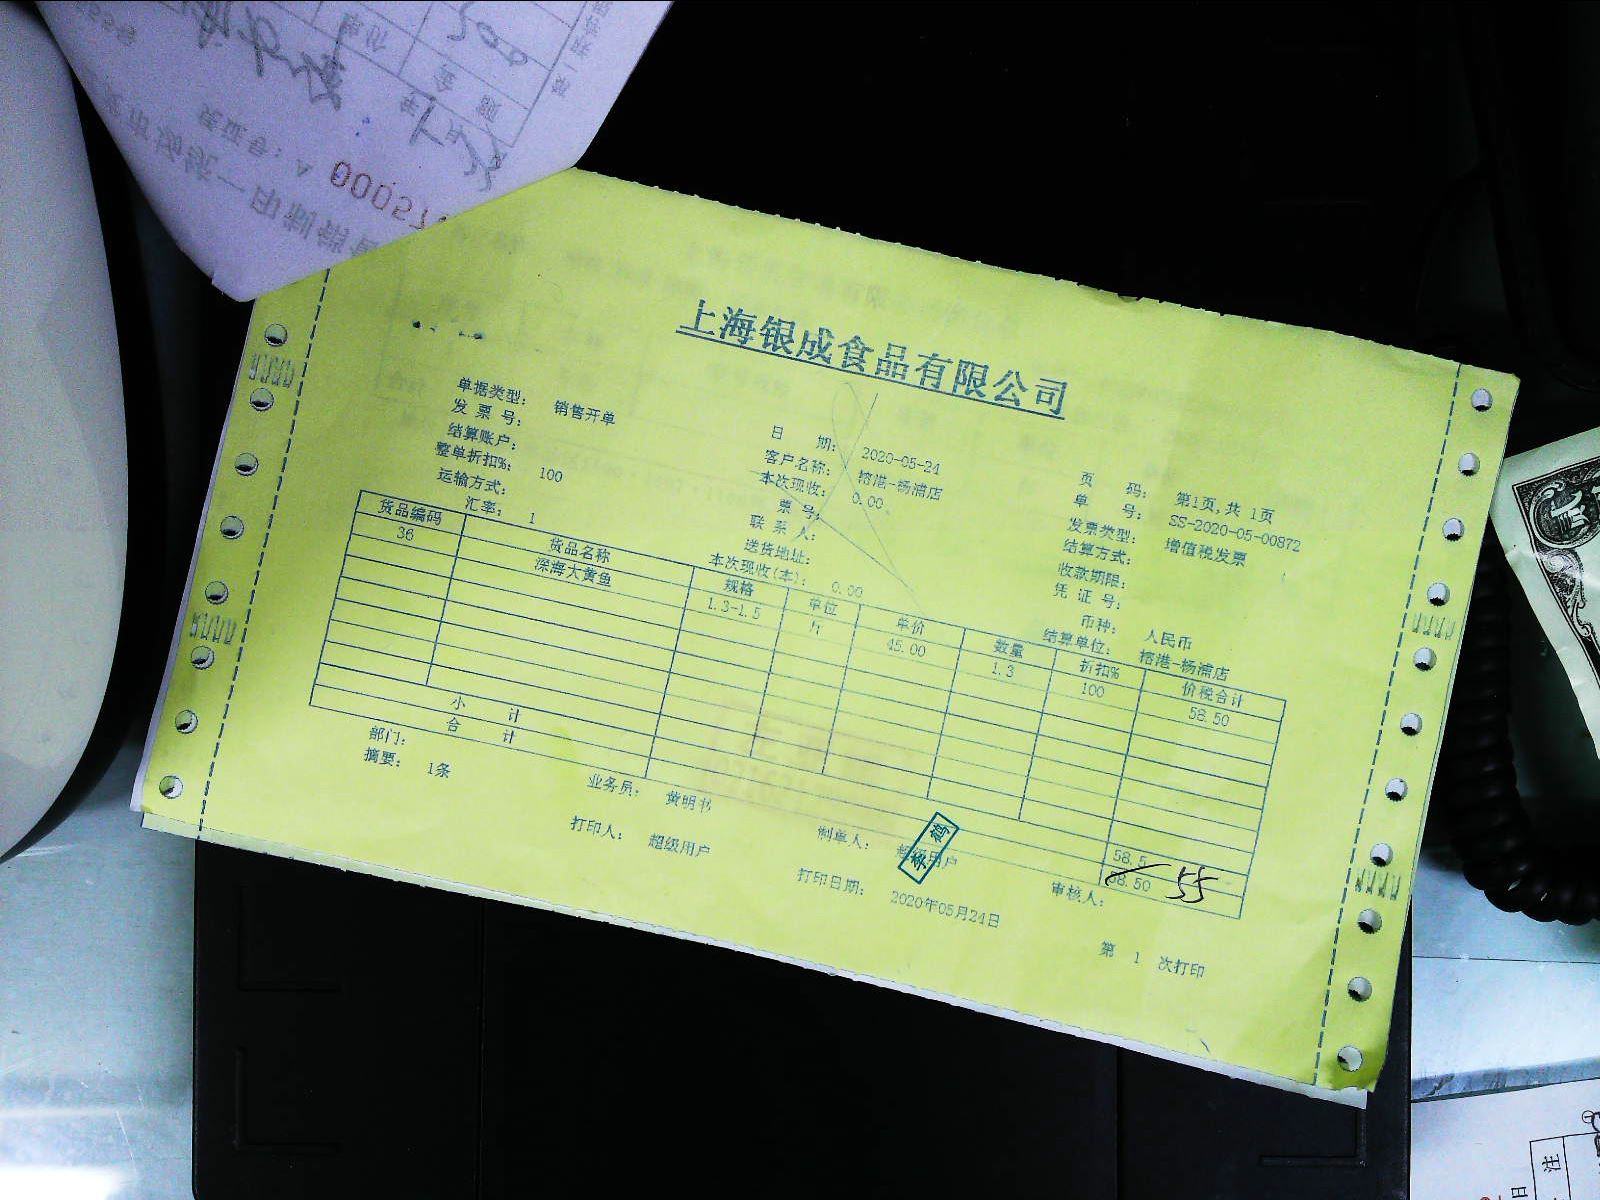 00057
上海银成食品有限公司
单据类型： 销售开单
日 期： 2020-05-24
页 码： 第1页,共 1页
发 票 号：
客户名称： 榕港-杨浦店
单 号： SS-2020-05-00872
结算账户：
本次现收： 0.00
发票类型： 增值税发票
整单折扣%： 100
票 号：
结算方式：
运输方式：
联 系 人：
收款期限：
汇率： 1
送货地址：
凭 证 号：
本次现收(本)： 0.00
币种： 人民币
结算单位： 榕港-杨浦店
货品编码 货品名称 规格 单位 单价 数量 折扣% 价税合计
36 深海大黄鱼 1.3-1.5 斤 45.00 1.3 100 58.50
小 计 58.5
合 计 58.50 55
部门：
业务员： 黄明书
制单人： 超级用户
审核人：
摘要： 1条
打印人： 超级用户
打印日期： 2020年05月24日
第 1 次打印
注